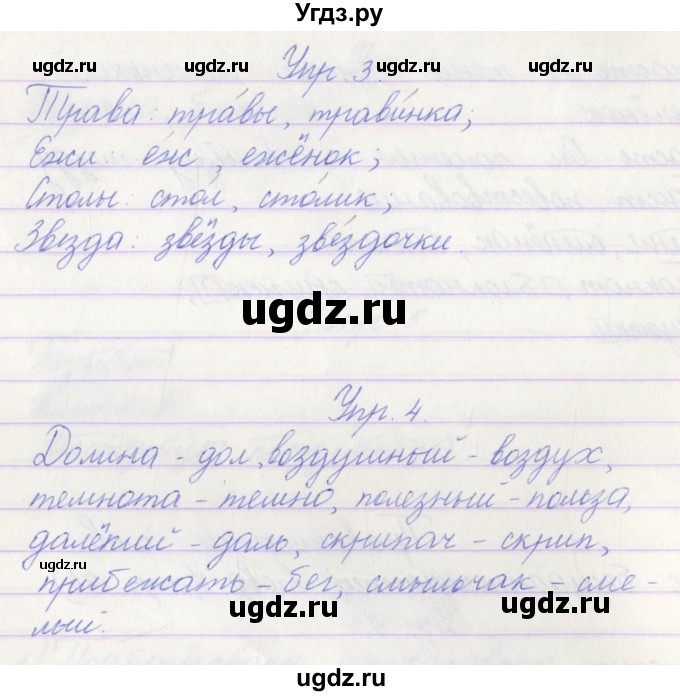 Угдз.ру
ugdz.ru ugdz.ru Упр. 3. ugdz.ru ugdz.ru
Трава: тра́вы, трави́нка;
Ежи: ёж, ежёнок;
Столы: стол, сто́лик;
Звезда: звёзды, звёздочки.
ugdz.ru
Упр. 4.
Долина - дол, воздушный - воздух,
темнота - темно, полезный - польза,
далёкий - даль, скрипач - скрип,
ugdz.ru ugdz.ru
прибежать - бег, смыльчак - сме-
ugdz.ru ugdz.ru
лый.
ugdz.ru ugdz.ru
Угдз.ру